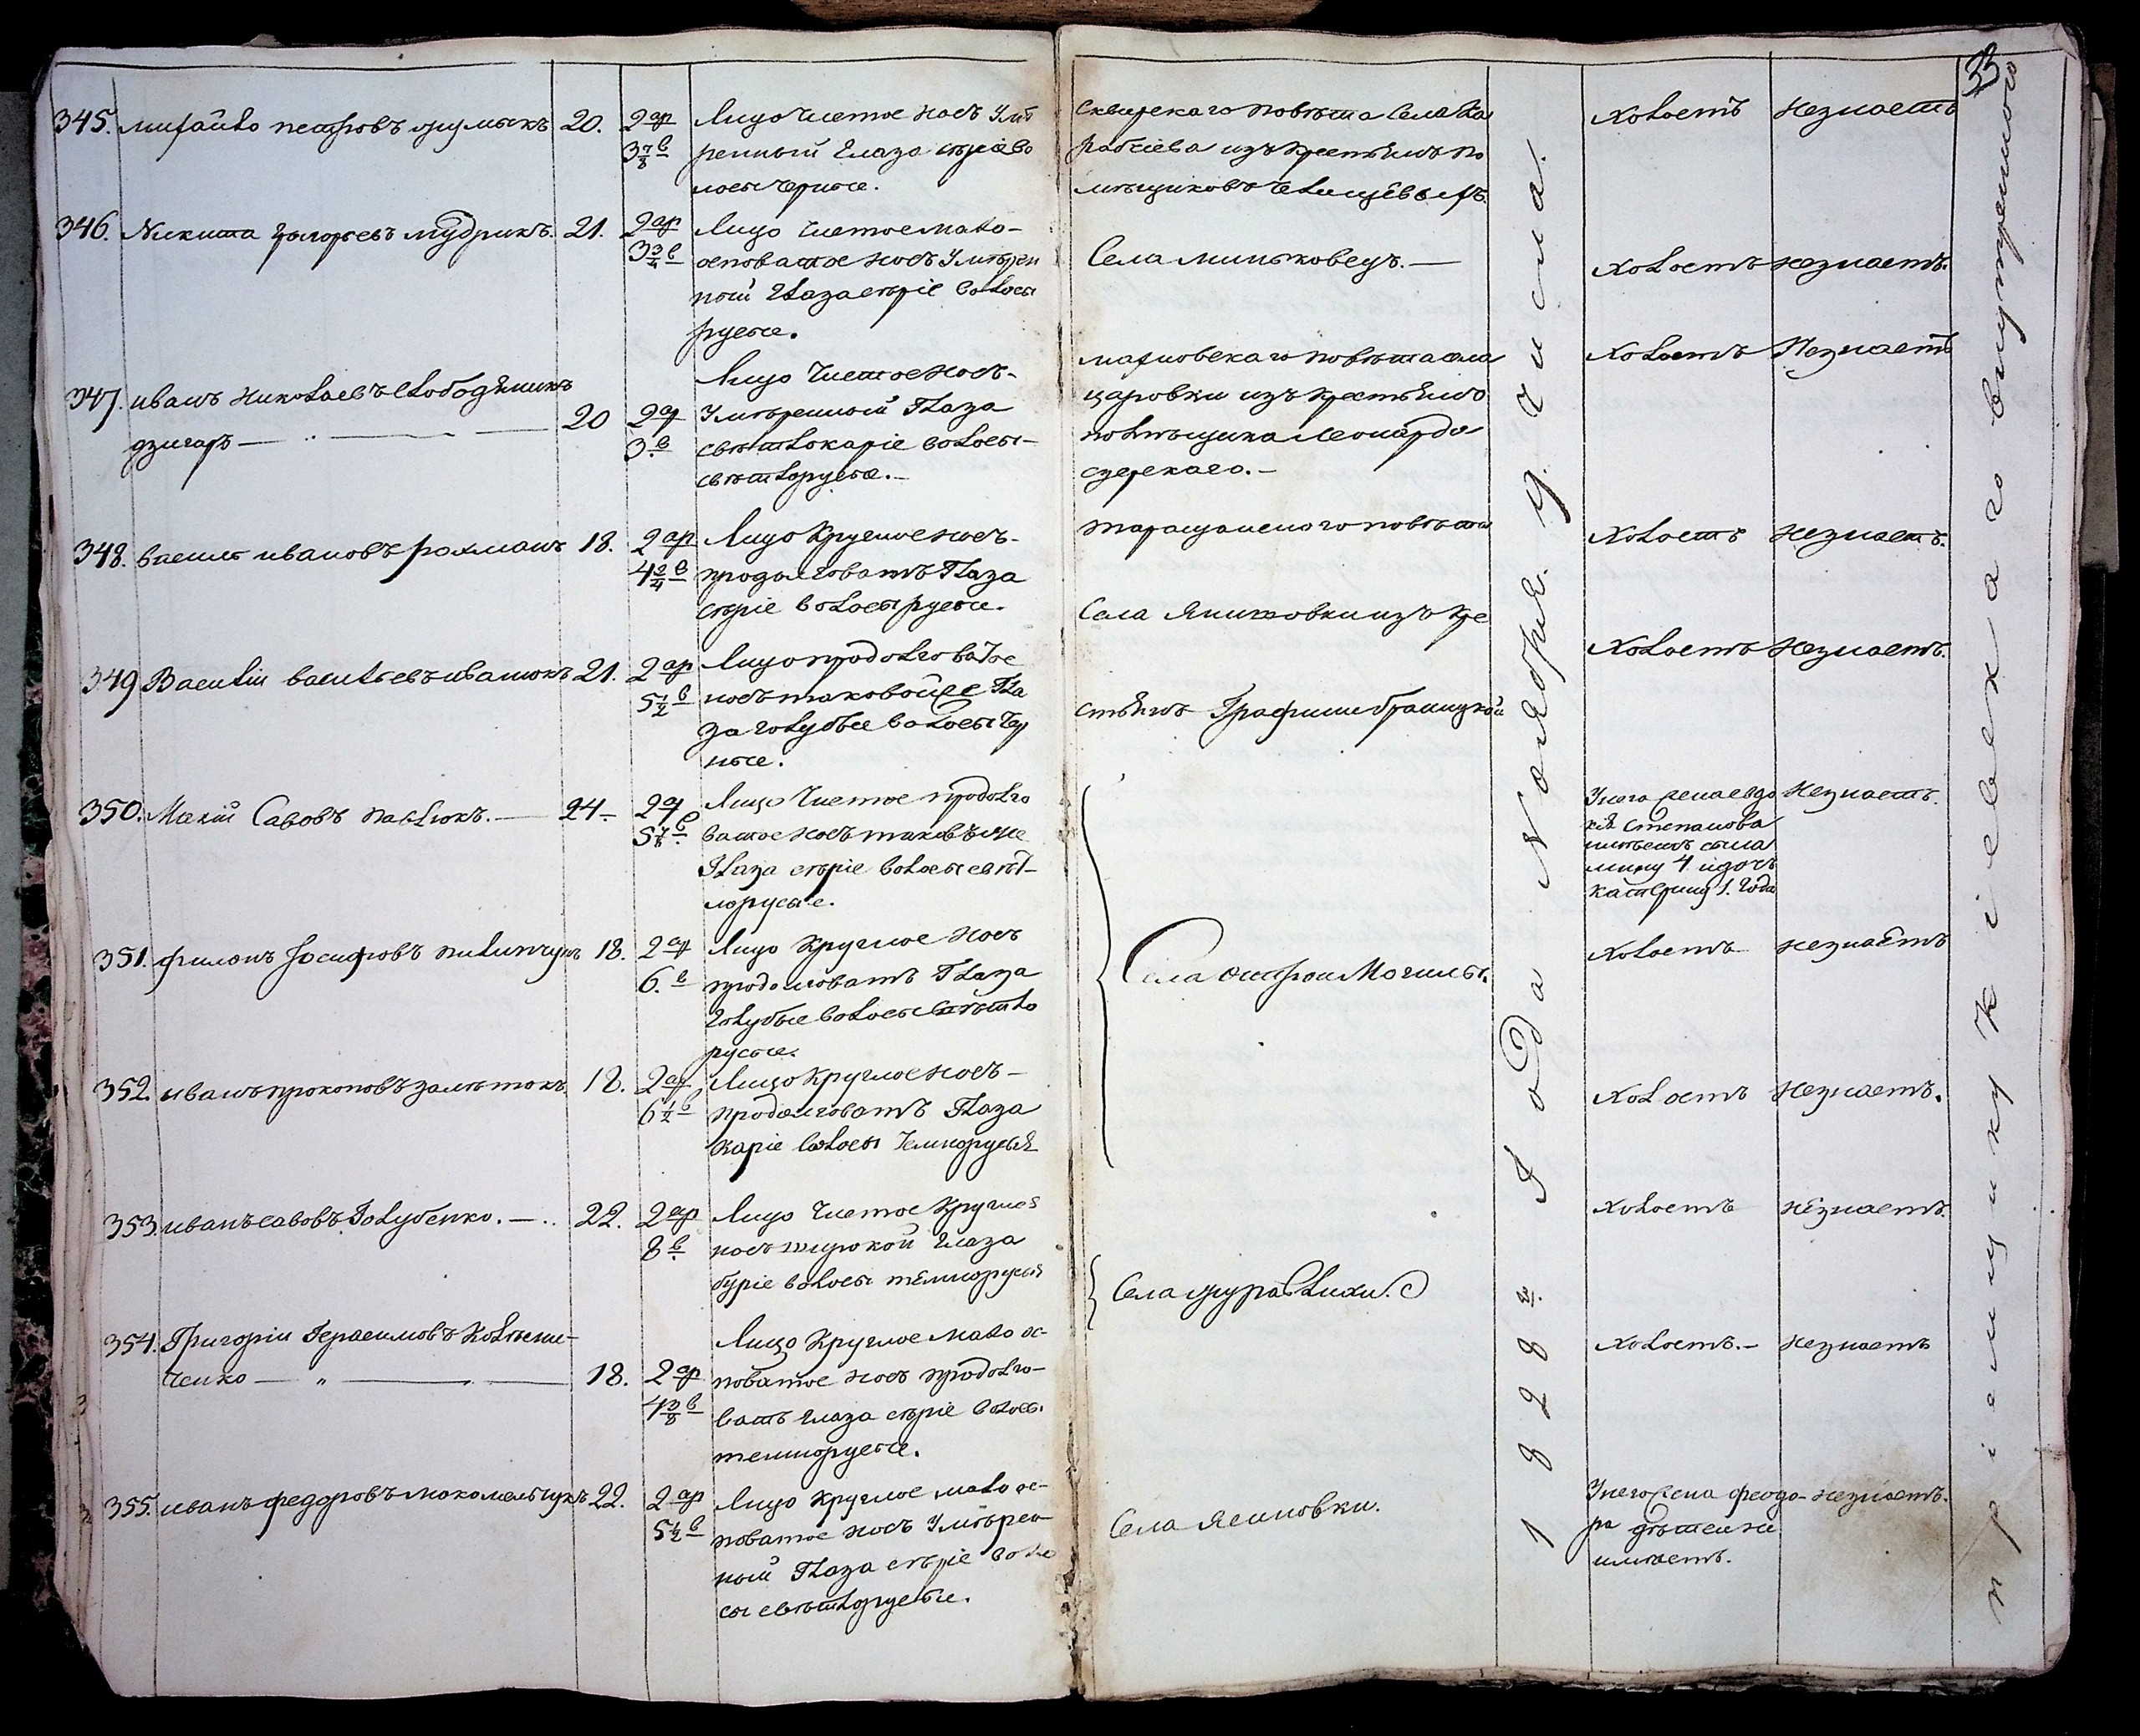 33
345. михайло петровъ
20.
2 ар
3 7/8 в
Лицо Чистое носъ Умѣ
ренный Глаза сѣріе во
лосы Черные.
Сквирскаго повѣта Села Ка
изъ крестьянъ по
мѣщиковъ
Холостъ
незнаетъ
346. Никита Григорьевъ мудрикъ.
21.
2 ар
3 3/4 в
Лицо Чистое мало-
осповатое носъ Умѣрен
ный Глаза сѣріе волосы
русые.
Села миньковецъ.
Холостъ
незнаетъ.
347. иванъ николаевъ слободяникъ
дзигарь
20
2 ар
3. в
Лицо Чистое носъ-
Умѣренный Глаза
свѣтлокаріе волосы-
свѣтлорусые.
махновскаго повѣта села
царовки изъ крестьянъ
помѣщика Леонарда
Холостъ
Незнаетъ
348. васили ивановъ рахманъ
18.
2 ар
4 3/4 в
Лицо Круглое носъ-
продолговатъ Глаза
сѣріе волосы русые.
таращанского повѣта
Холостъ
незнаетъ.
Села Янитовки изъ кре
349 Василіи васильевъ иванюкъ
21.
2 ар
5 1/2 в
Лицо продолговатое
носъ таковойже Гла
за голубые волосы Чер
ные.
стьянъ Графини браницкой
Холостъ
незнаетъ.
350. Мокій Савовъ павлюкъ.
24
2 ар
5 7/8 в
Лицо Чистое продолго
ватое носъ таковъ же
Глаза сѣріе волосы свѣт-
лорусые.
Унего жена евдо
кія Степанова
имѣетъ сына
мину 4 идочь
Катерину 1. Года
Незнаетъ.
351. филонъ Іосифовъ пилипчукъ
18.
2 ар
6. в
Лицо Круглое носъ
продолговатъ Глаза
Голубые волосы свѣтло
русые.
Села острои Могилы.
Холостъ
незнаетъ
352. иванъ прокоповъ заметюкъ.
18.
2 ар
6 1/2 в
Лицо Круглое носъ-
продолговатъ Глаза
Каріе волосы темнорусыя
Холостъ
незнаетъ.
353. иванъ савовъ Голубенко.
22.
2 ар
8 в
Лицо Чистое Круглое
носъ широкой Глаза
буріе волосы темнорусыя
Села журавлихи.
Холостъ
незнаетъ.
354. Григоріи Герасимовъ Колѣсни-
ченко
18.
2 ар
4 3/8 в
Лицо Круглое мало ос-
поватое носъ продолго-
ватъ Глаза сѣріе волосы
темнорусые.
Холостъ.
незнаетъ
355. иванъ федоровъ макомельчукъ
22.
2 ар
5 1/2 в
Лицо Круглое мало ос-
поватое носъ Умѣрен
ный Глаза сѣріе воло
сы свѣтлорусые.
Села Ясиновки.
Унего жена феодо-
ра дѣтеи не
имѣетъ.
незнаетъ.
1828 го. Года Ноября 9. числа.
пріемщику Кіевскаго внутренного